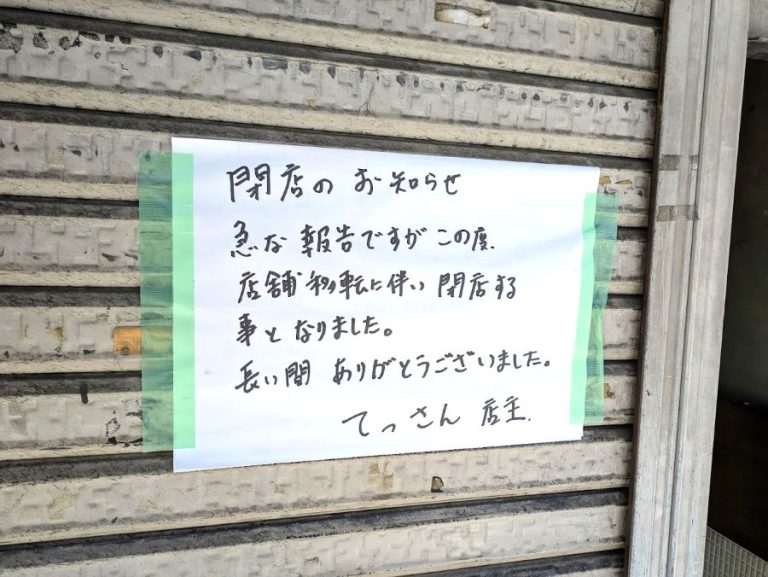 閉店のお知らせ
急な報告ですがこの度、
店舗移転に伴い閉店する
事となりました。
長い間ありがとうございました。
てっさん 店主.